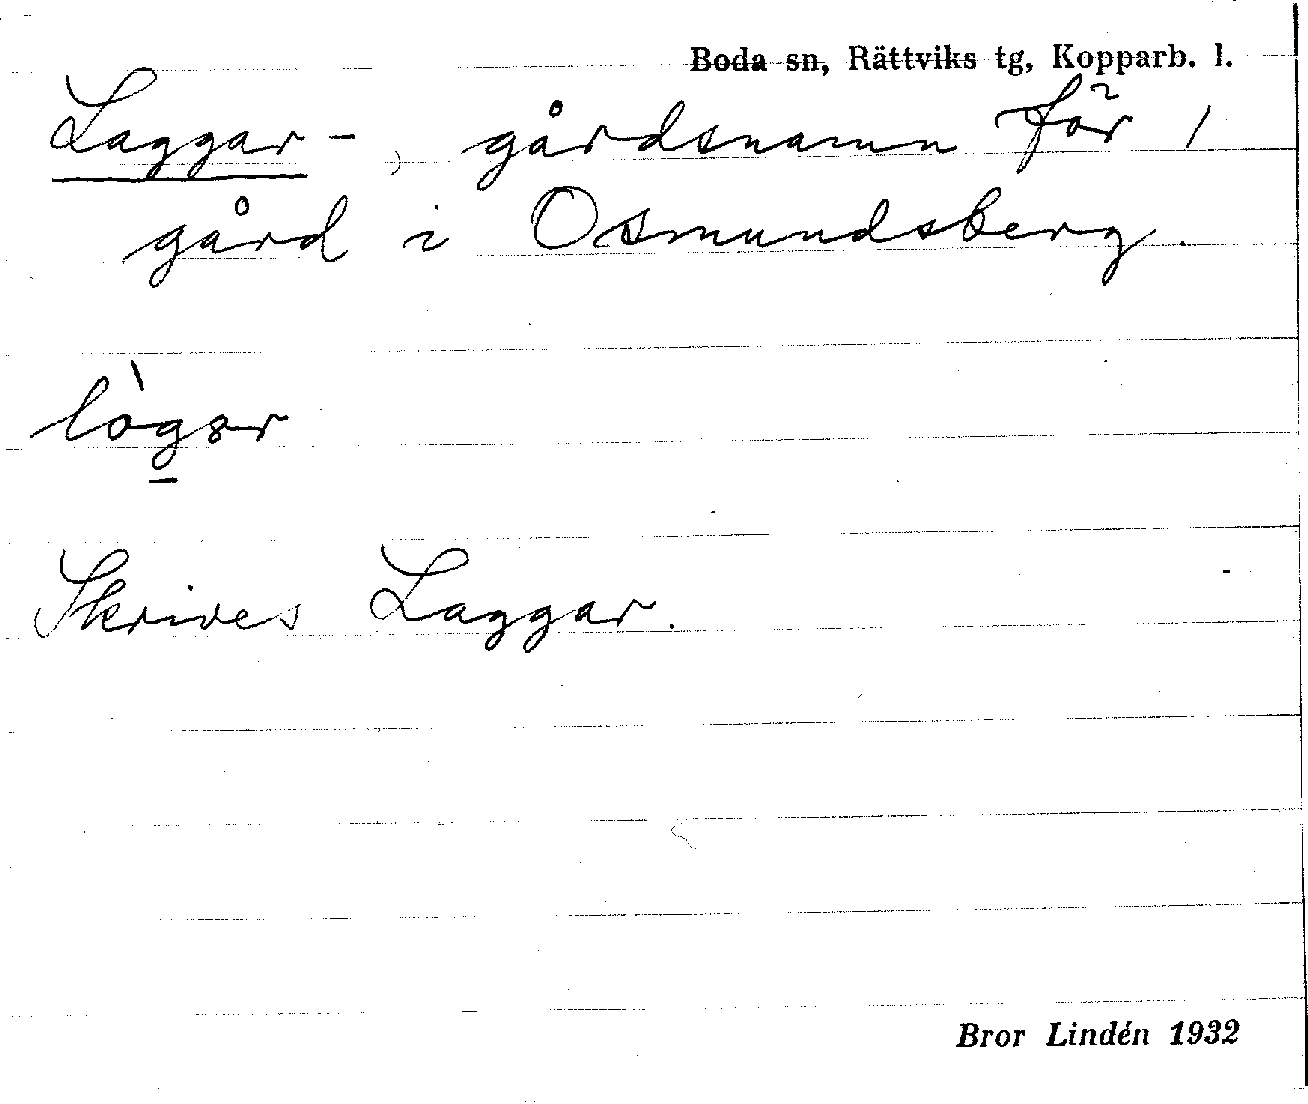 Boda sn, Rättviks tg, Kopparb. l.
Laggar-, gårdsnamn för 1
gård i Osmundsberg.
lògər
Skrives Laggar.
Bror Lindén 1932